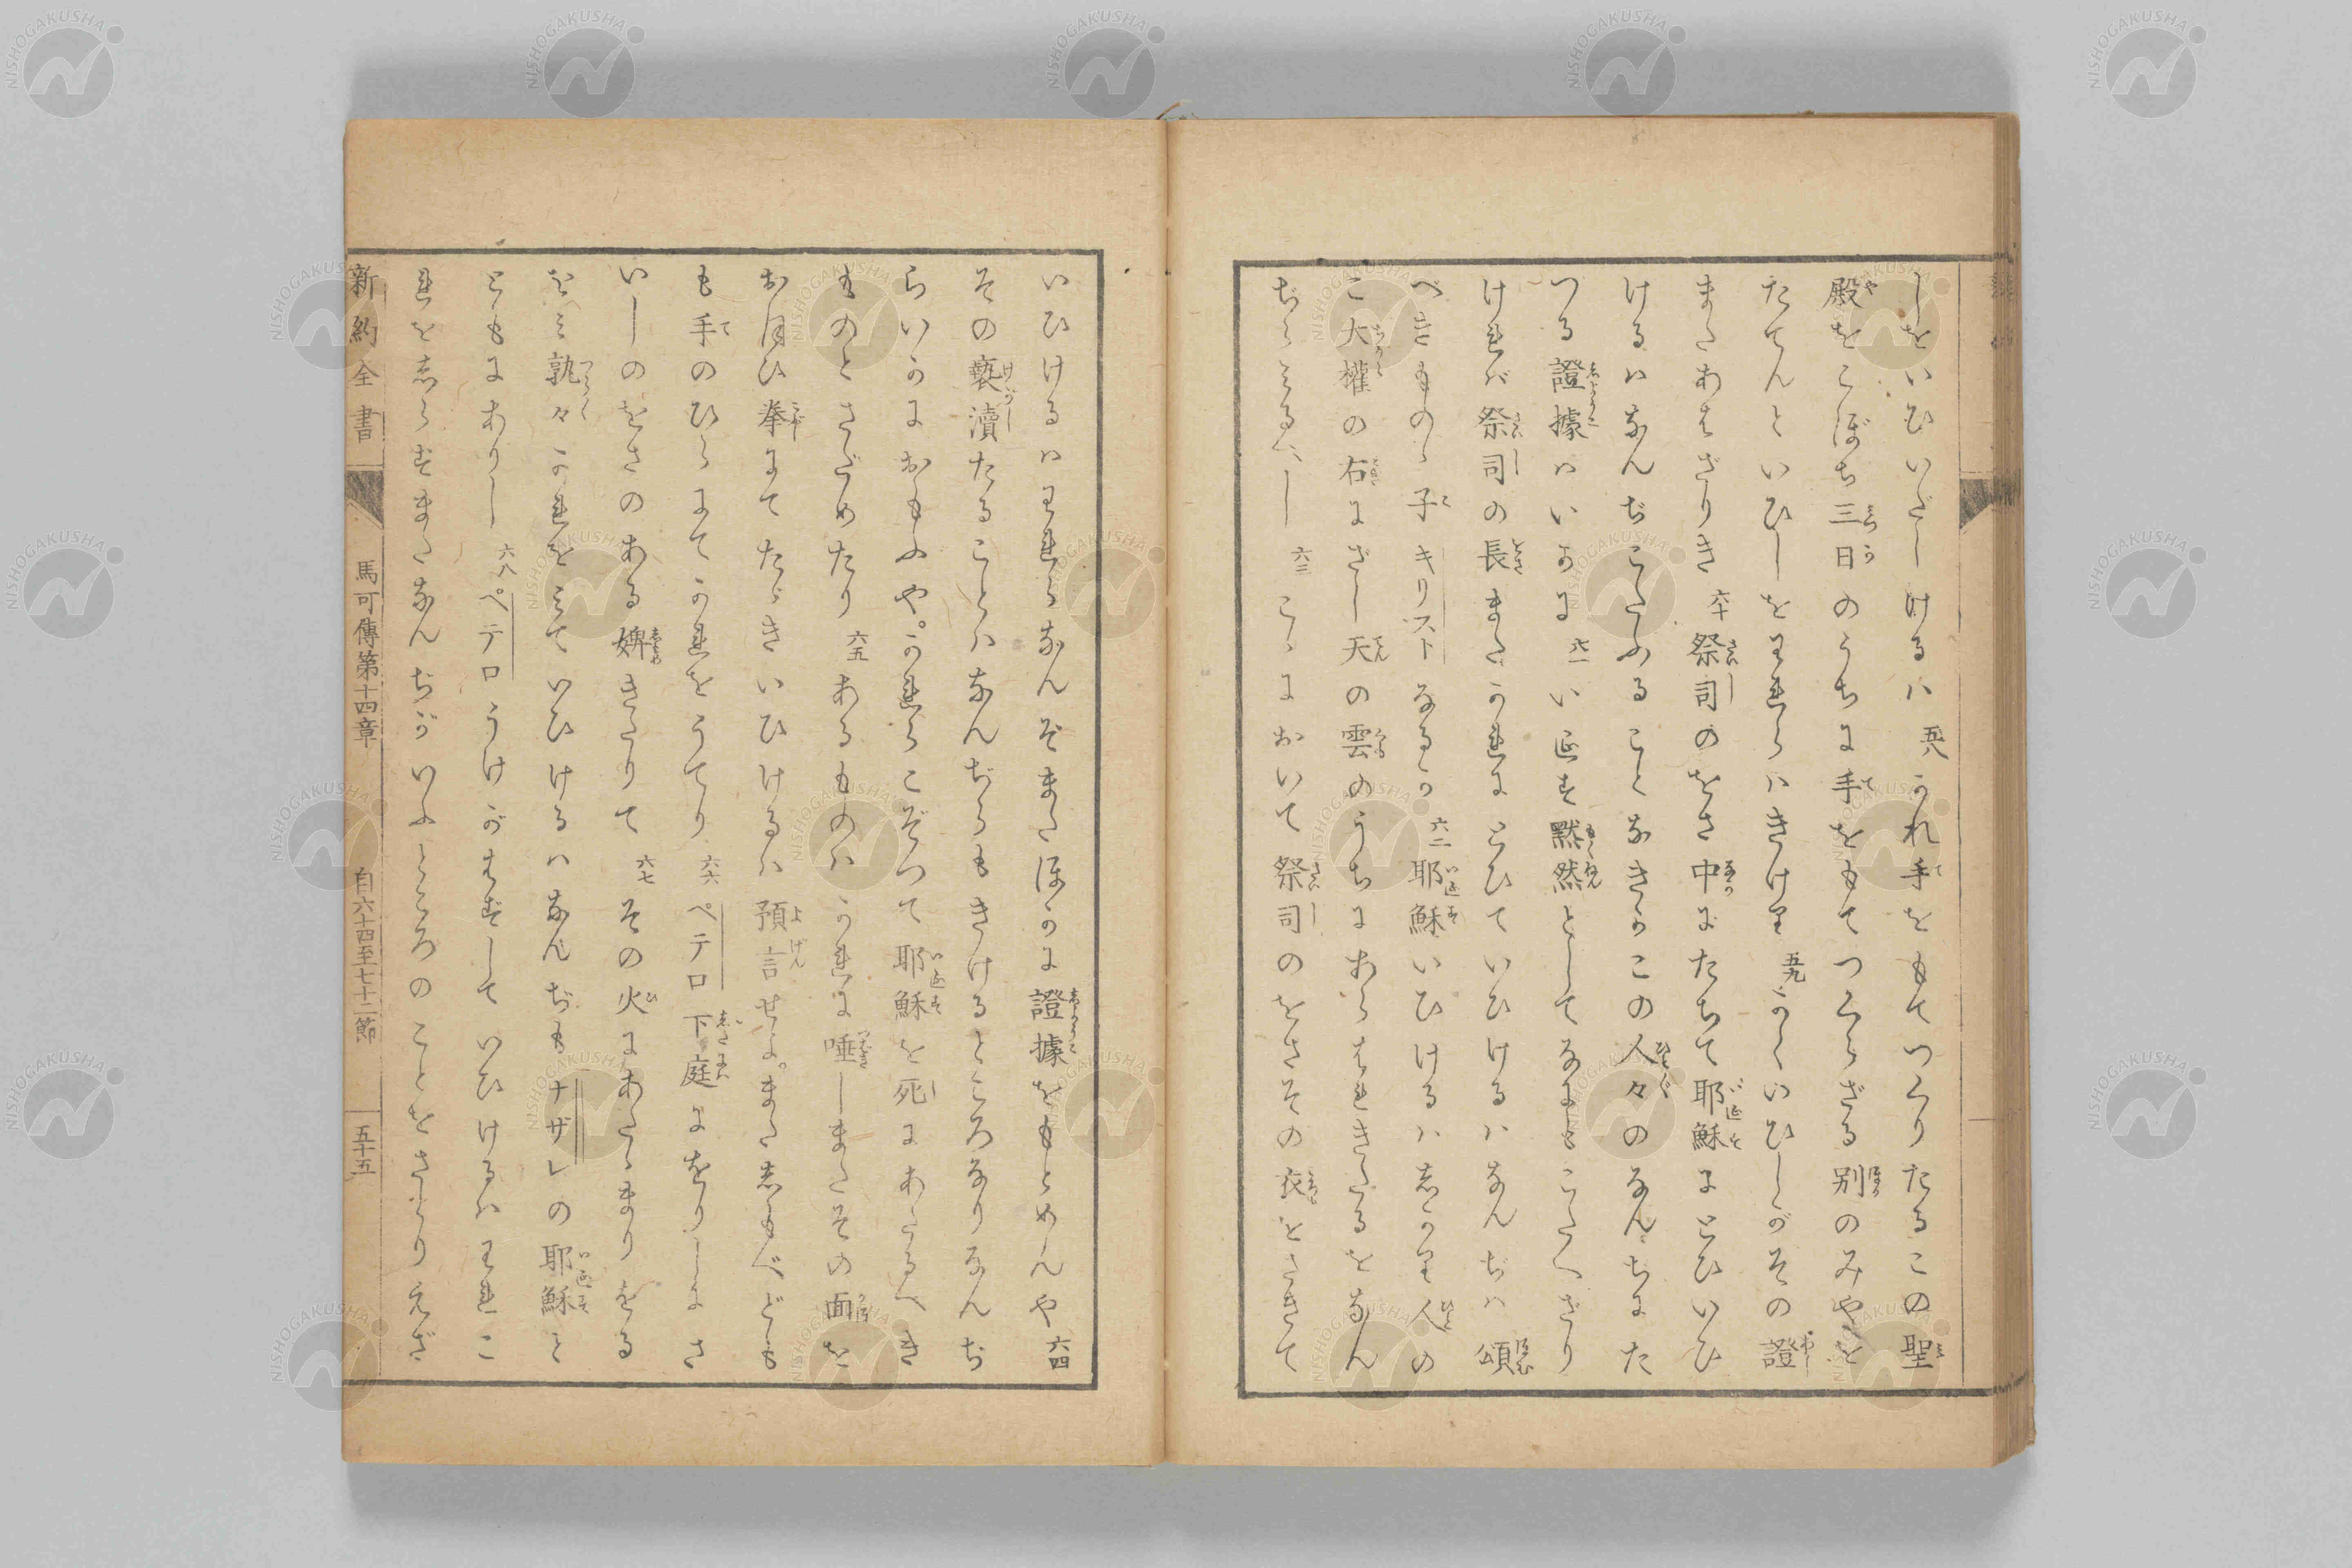 しをいひいだしけるハ 五八 かれ手をもてつくりたるこの聖
殿をこぼち三日のうちに手をもてつくらざる別のみやを
たてんといひしをわれらハきけり 五九 かくいひしがその證
またあはざりき 六十 祭司のをさ中にたちて耶穌にとひいひ
けるハなんぢこたふることなきかこの人々のなんぢにた
つる證據ハいかに 六一 いゑす默然としてなにもこたへざり
ければ祭司の長またかれにとひていひけるハなんぢハ頌
べきものゝ子キリストなるか 六二 耶穌いひけるハしかり人の
こ大權の右にざし天の雲のうちにあらはれきたるをなん
ぢらみるべし 六三 こゝにおいて祭司のをさその衣をさきて
いひけるハわれらなんぞまたほかに證據をもとめんや 六四
その褻瀆たることハなんぢらもきけるところなりなんぢ
らいかにおもふや。かれらこぞつて耶穌を死にあたるべき
ものとさだめたり 六五 あるものハかれに唾しまたその面を
おほひ拳にてたゝきいひけるハ預言せよ。またしもべども
も手のひらにてかれをうてり 六六 ペテロ下庭にをりしにさ
いしのをさのある婢きたりて 六七 その火にあたゝまりをる
をみ孰々かれをみていひけるハなんぢもナザレの耶穌と
ともにありし 六八 ペテロうけがはずしていひけるハわれこ
れをしらずまたなんぢがいふところのことをさとりえざ
新約全書 馬可傳第十四章 自六十四至七十二節 五十五